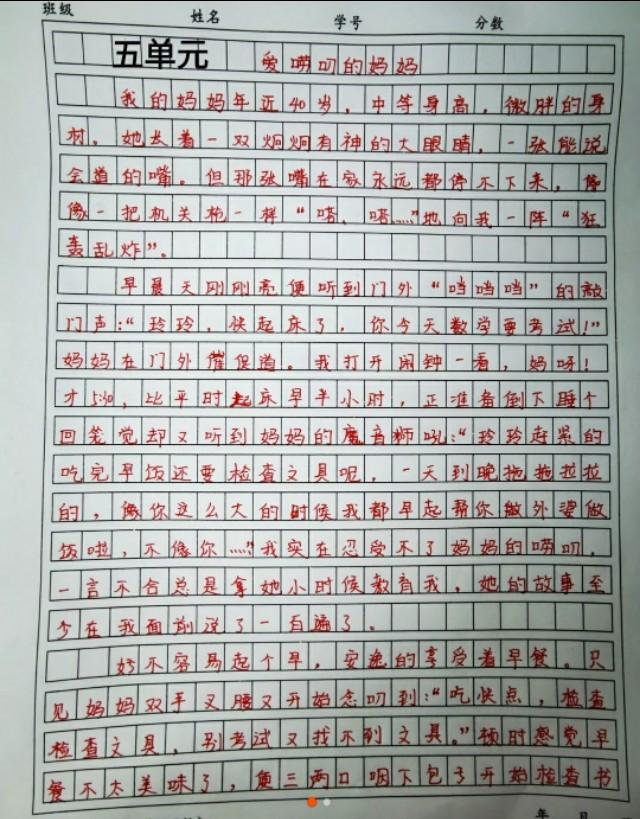 班级 姓名 学号 分数
五单元 爱唠叨的妈妈
我的妈妈年近40岁，中等身高，微胖的身
材。她长着一双炯炯有神的大眼睛，一张能说
会道的嘴。但那张嘴在家永远都停不下来，像
像一把机关枪一样“嗒、嗒……”地向我一阵“狂
轰乱炸”。
早晨天刚刚亮便听到门外“哐哐哐”的敲
门声：“玲玲，快起床了，你今天数学要考试！”
妈妈在门外催促道。我打开闹钟一看，妈呀！
才5:30，比平时起床早半小时，正准备倒下睡个
回笼觉却又听到妈妈的魔音狮吼：“玲玲赶紧的
吃完早饭还要检查文具呢，一天到晚拖拖拉拉
的，像你这么大的时候我都早起帮你外婆做
饭啦，不像你……”我实在忍受不了妈妈的唠叨，
一言不合总是拿她小时候教育我，她的故事至
今在我面前说了一百遍了。
好不容易起个早，安逸的享受着早餐。只
见妈妈双手叉腰又开始念叨到：“吃快点，检查
检查文具，别考试又找不到文具。”顿时感觉早
餐不太美味了，便三两口咽下包子开始检查书
年 月